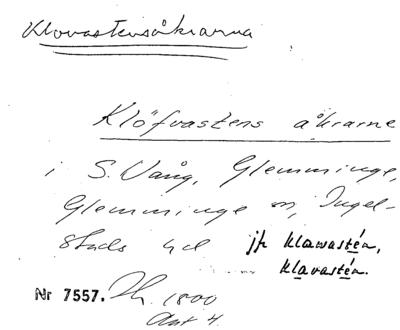 Klovastensåkrarna
Klöfvastens åkrarne
i S. Vång, Glemminge,
Glemminge sn, Ingel-
stads hd jfr klawastén,
klavastén.
Nr 7557. 1800
Akt 4.